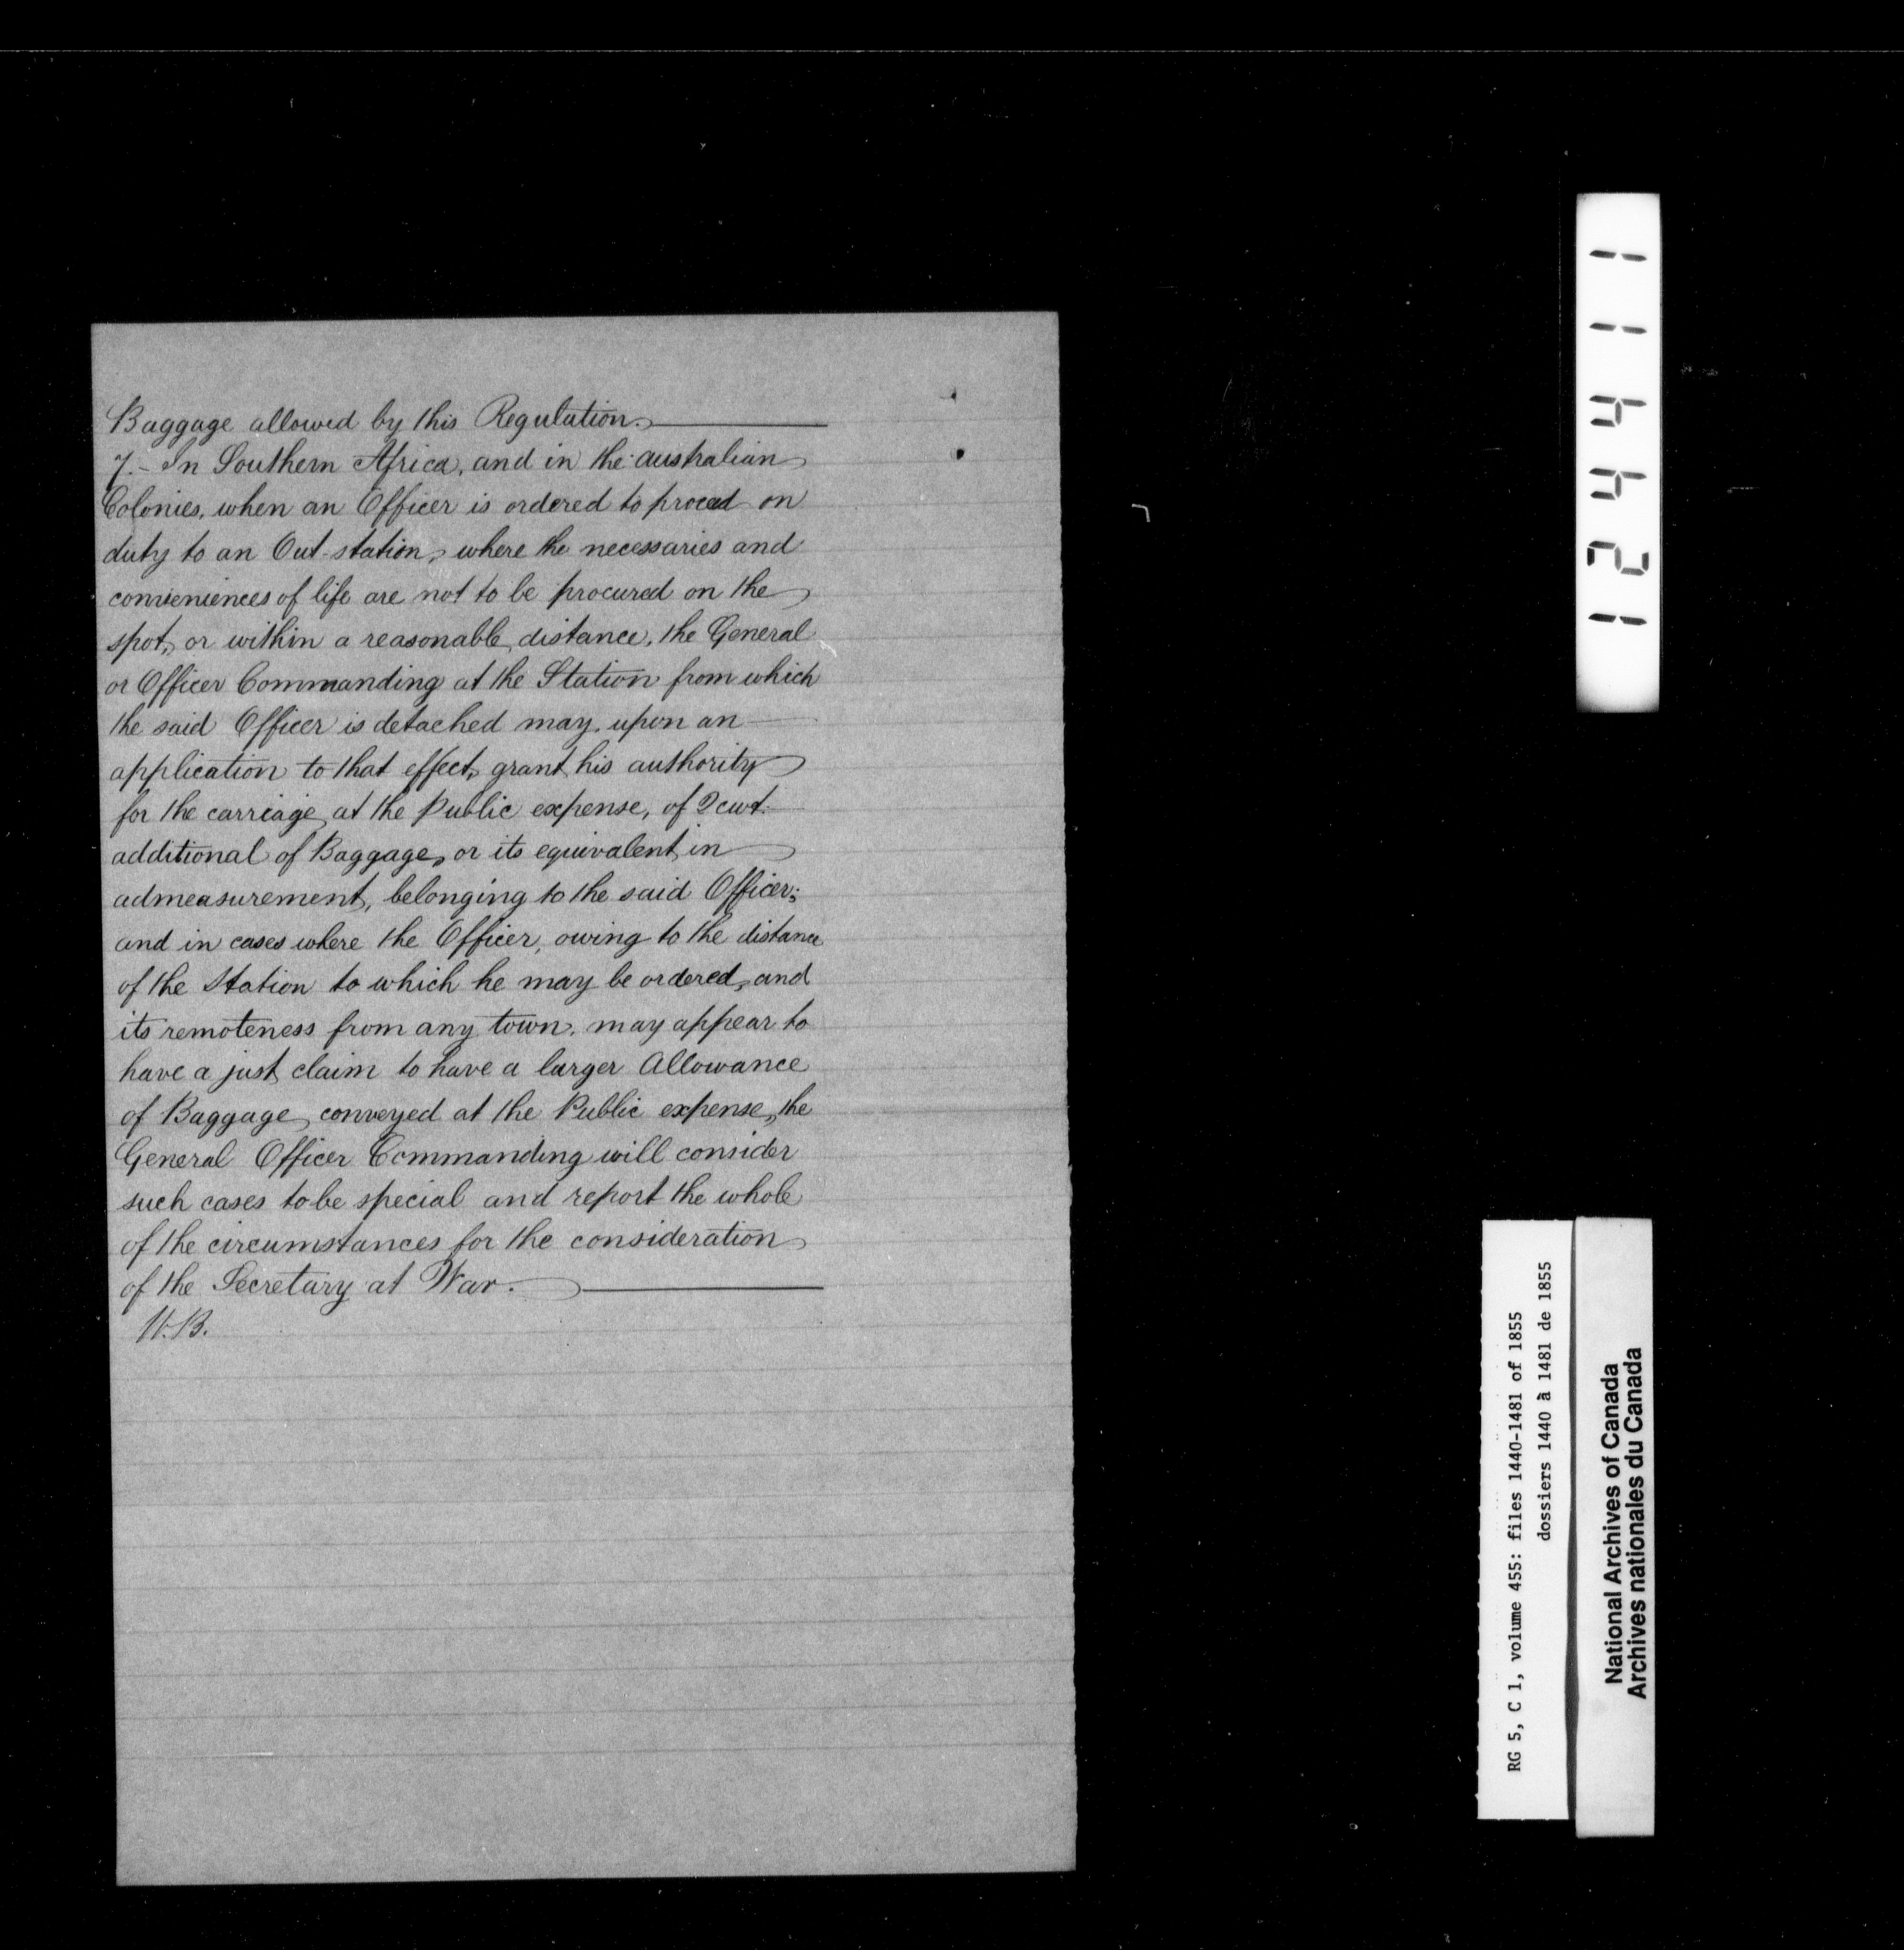 Baggage allowed by this Regulation.
7.- In Southern Africa, and in the australian
Colonies, when an Officer is ordered to proceed on
duty to an Out-station, where the necessaries and
conveniences of life are not to be procured on the
spot, or within a reasonable distance, the General
or Officer Commanding at the Station from which
the said Officer is detached may, upon an
application to that effect, grant his authority
for the carriage, at the Public expense, of 2 cwt.
additional of Baggage, or its equivalent in
admeasurement, belonging to the said Officer;
and in cases where the Officer, owing to the distance
of the Station to which he may be ordered, and
its remoteness from any town, may appear to
have a just claim to have a larger Allowance
of Baggage conveyed at the Public expense, the
General Officer Commanding will consider
such cases to be special and report the whole
of the circumstances for the consideration
of the Secretary at War.
H.B.
124411
RG 5, C 1, volume 455: files 1440-1481 of 1855
dossiers 1440 à 1481 de 1855
National Archives of Canada
Archives nationales du Canada